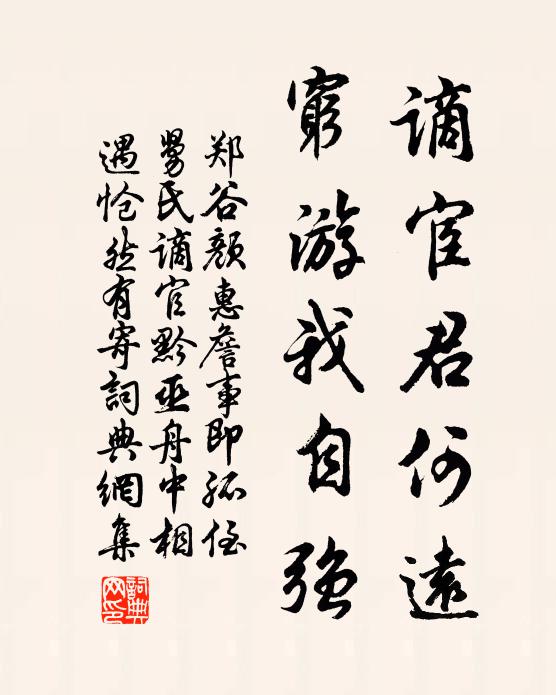 謫宦君何遠
窮游我自強
郑谷顏惠詹事即孤侄
舅氏謫官黔巫舟中相
遇愴然有寄詞典網集
詞典
网印